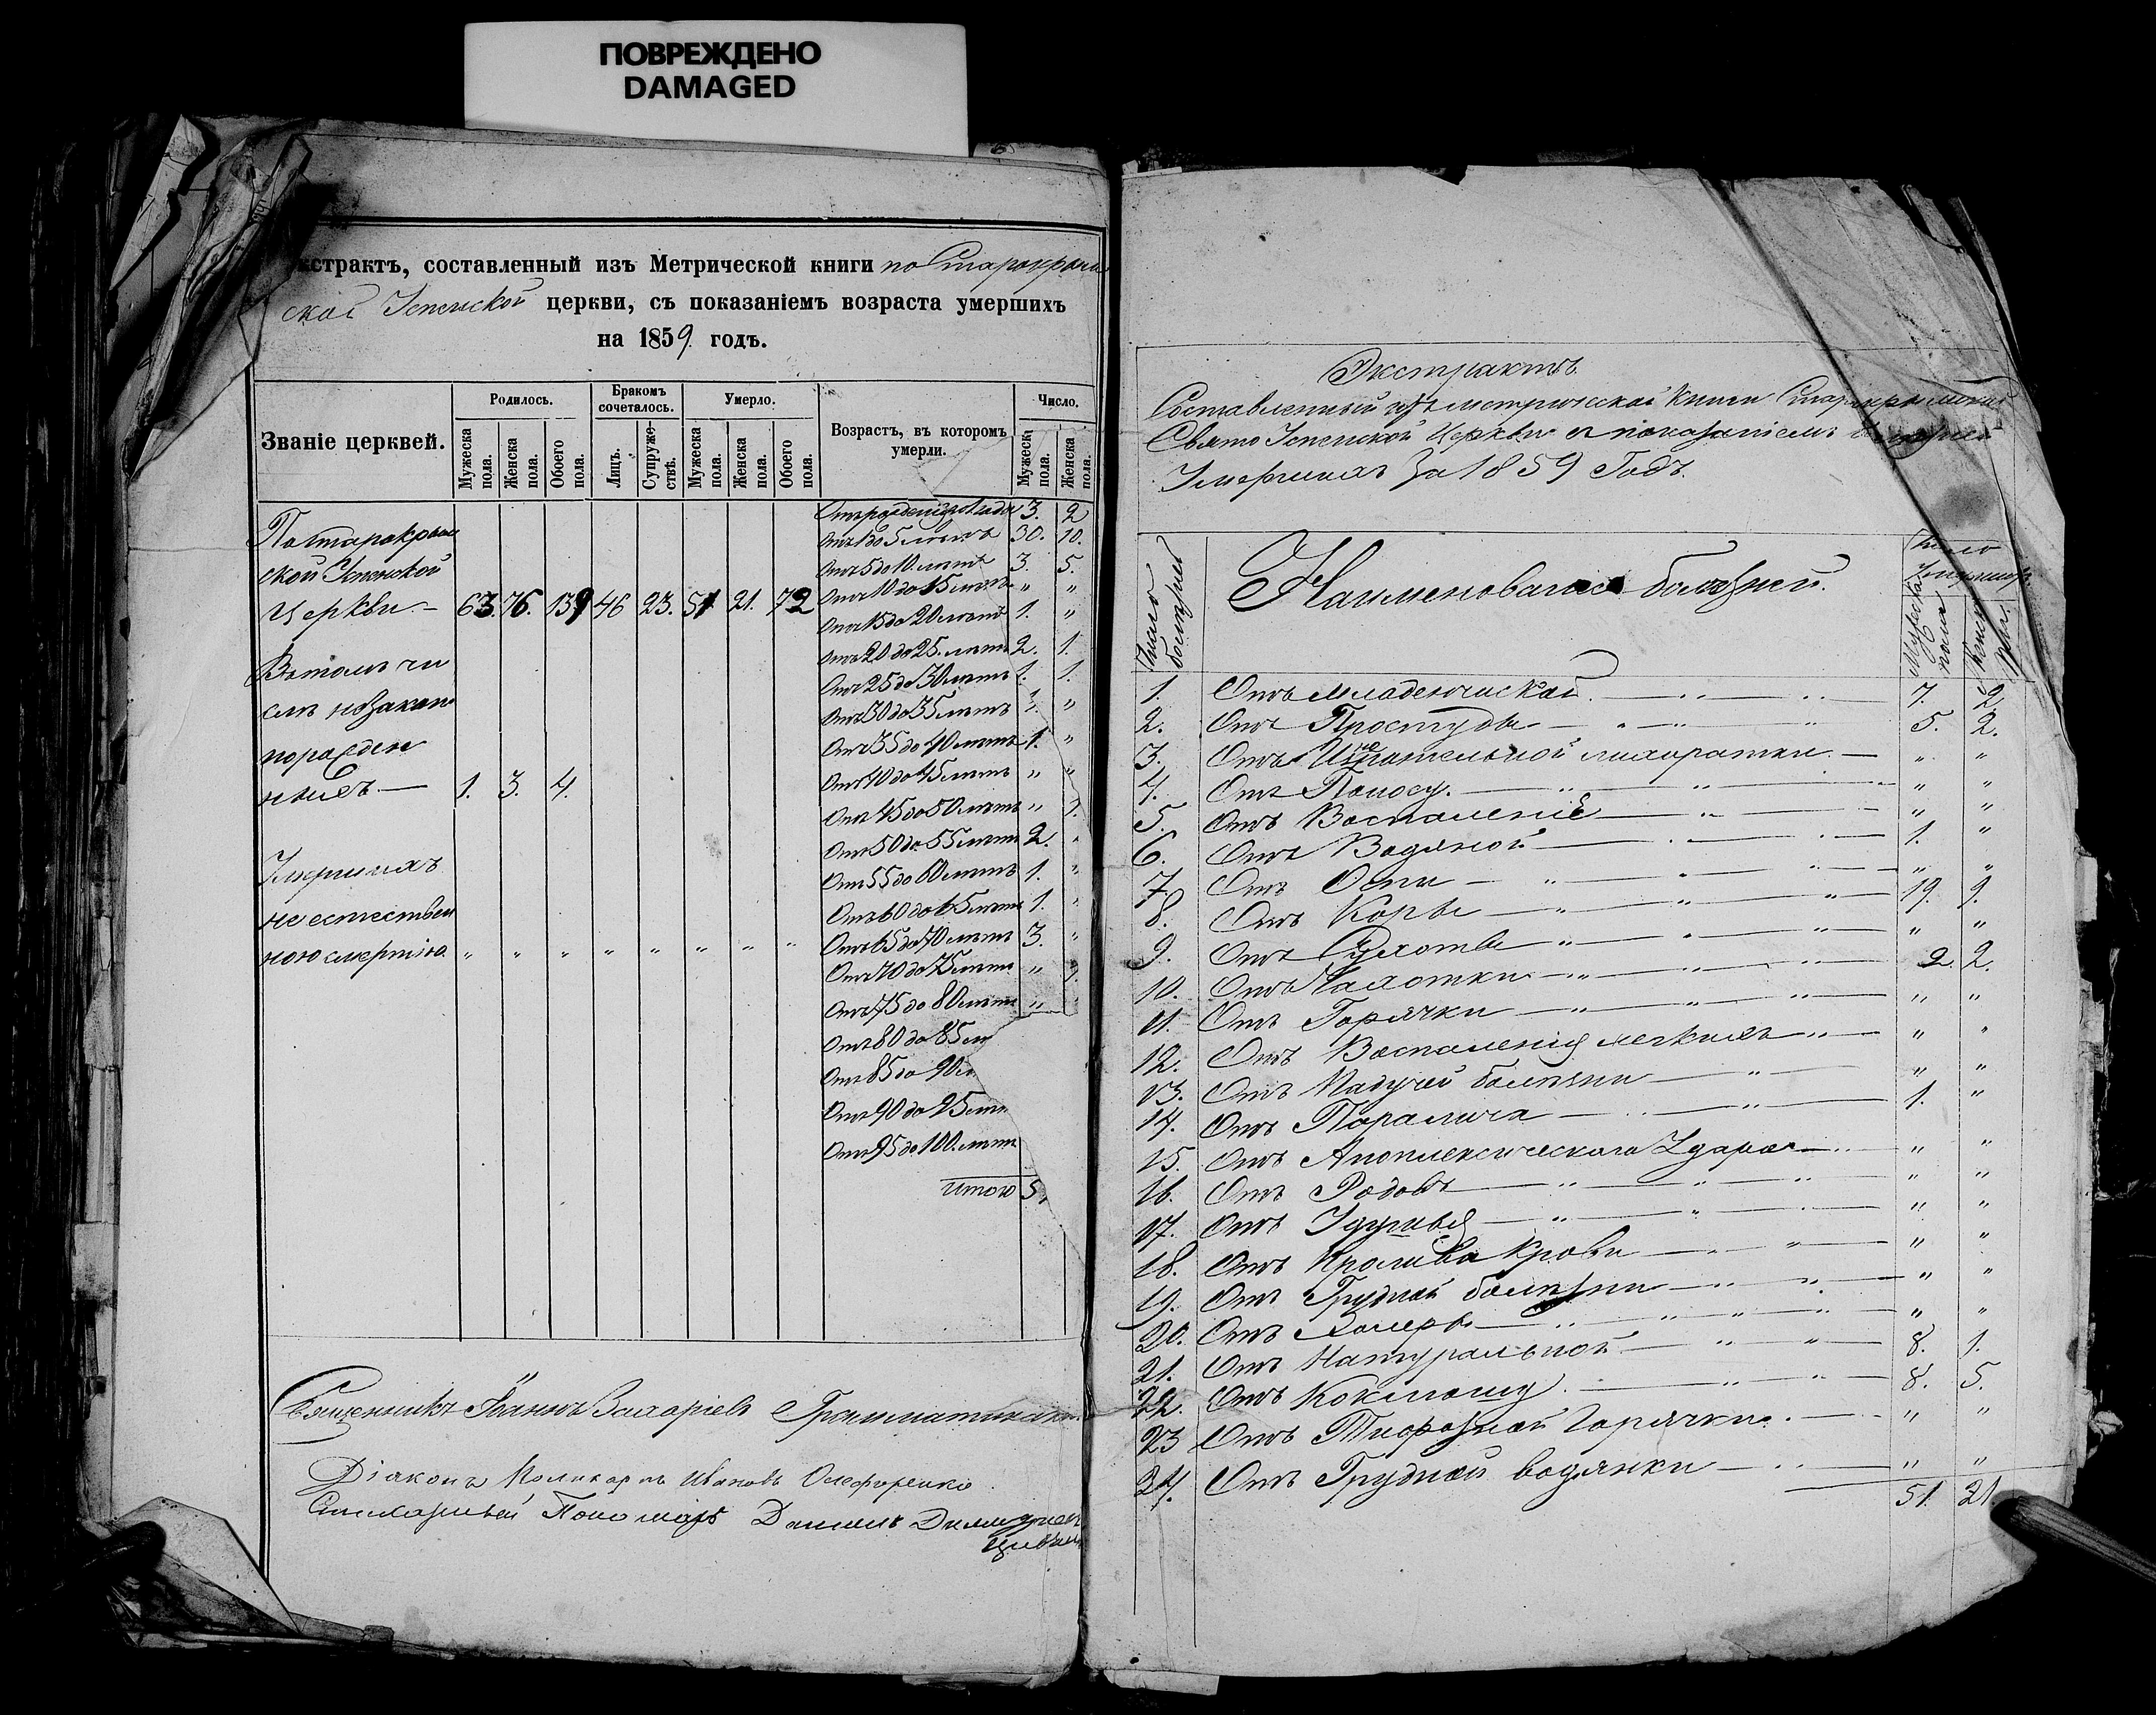 ПОВРЕЖДЕНО
DAMAGED
кстрактъ, составленный изъ Метрической книги по Старокрым
ской Успенской церкви, съ показаніемъ возраста умершихъ
на 1859 годъ.
Званіе церквей.
Родилось.
Бракомъ сочеталось.
Умерло.
Возрастъ, въ которомъ умерли.
Число.
Мужеска пола.
Женска пола.
Обоего пола.
Лицъ.
Супружествъ.
Мужеска пола.
Женска пола.
Обоего пола.
Мужеск. пола.
Женска пола.
По Старокрым
ской Успенской
Церкви — 63. 76. 139 46 23. 51. 21. 72
Въ томъ чи
слѣ незакон
норожден
ныхъ — 1. 3. 4.
Умершихъ
не естествен
ною смертію. " " " " " " " "
Отъ рожденія до 1 года 3. 2
Отъ 1 до 5 лѣтъ 30. 10.
Отъ 5 до 10 лѣтъ 3. 5.
Отъ 10 до 15 лѣтъ " "
Отъ 15 до 20 лѣтъ 1. "
Отъ 20 до 25 лѣтъ 2. 1.
Отъ 25 до 30 лѣтъ 1. 1.
Отъ 30 до 35 лѣтъ "
Отъ 35 до 40 лѣтъ 1. "
Отъ 40 до 45 лѣтъ " "
Отъ 45 до 50 лѣтъ " 1.
Отъ 50 до 55 лѣтъ 2. "
Отъ 55 до 60 лѣтъ 1. "
Отъ 60 до 65 лѣтъ 1. "
Отъ 65 до 70 лѣтъ 3. "
Отъ 70 до 75 лѣтъ "
Отъ 75 до 80 лѣтъ "
Отъ 80 до 85 лѣ
Отъ 85 до 90 л
Отъ 90 до 95 лѣт
Отъ 95 до 100 лѣтъ
Итого 5
Священникъ Іоаннъ Захаріевъ Грамматикаки
Діаконъ Поликарпъ Ивановъ Олефиренко
Стихарный Пономарь Даніилъ
Экстрактъ
Составленный изъ метрической Книги Старокрымской
Свято Успенской Церкви съ показаніемъ
Умершихъ За 1859 Годъ.
Число болѣзней
Наименованіе болѣзней.
Число умерш.
Мужеска пола
Женск. пола
1. Отъ младенческой 7. 2.
2. Отъ Простуды 5. 2.
3. Отъ Изнурительной лихорадки " "
4. Отъ Поносу " "
5. Отъ Воспаленіе " "
6. Отъ Водяной 1. "
7. Отъ Оспи " "
8. Отъ Корьи 19. 9.
9. Отъ Сухоты " "
10. Отъ Чахотки 2. 2.
11. Отъ Горячки " "
12. Отъ Воспаленія легкихъ " "
13. Отъ Падучей болѣзни " "
14. Отъ Паралича 1. "
15. Отъ Апоплексическаго Удара " "
16. Отъ Родовъ " "
17. Отъ Удушья " "
18. Отъ Пролива Крови " "
19. Отъ Грудной болѣзни " "
20. Отъ Холеры " "
21. Отъ Натуральной 8. 1.
22. Отъ Коклюшу 8. 5.
23 Отъ Тифозной Горячки " "
24. Отъ Грудной водянки " "
51. 21.